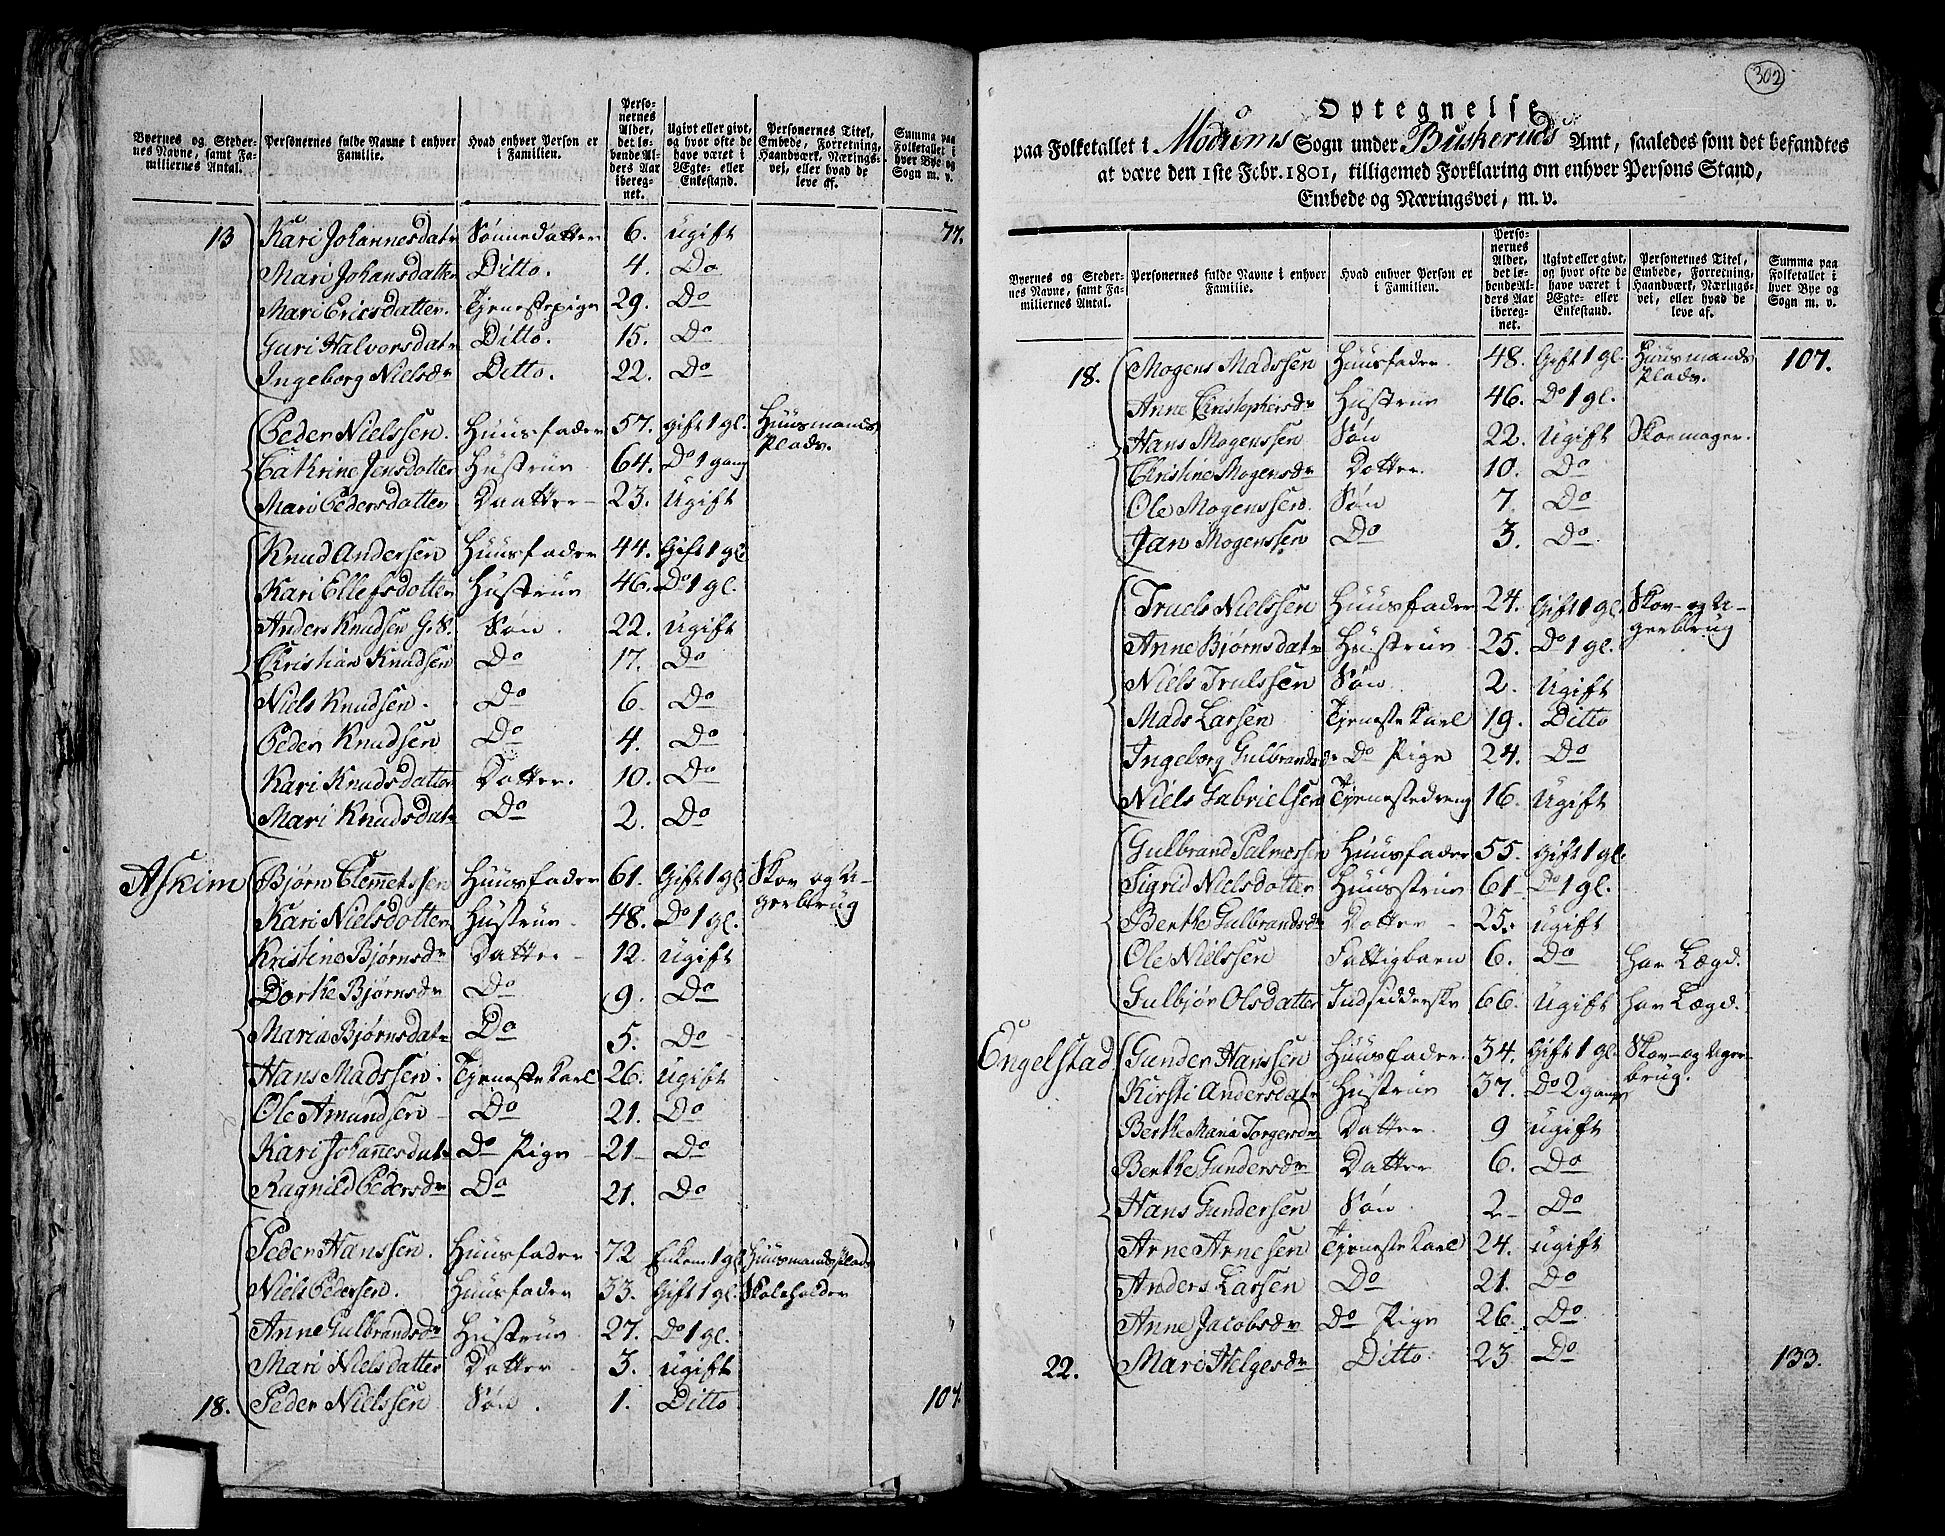 Byernes og Steder- Personernes fulde Navne i enhver Hvad enhver Person er Perso- Ugivt eller givt, Personernes Titel, Summa paa
nes Navne, samt Fa- Familie. i Familien. nernes og hvor ofte de Embede, Forretning, Folketallet i
miliernes Antal. Alder, have været i Haandværk, Nærings- hver Bye og
det lø- Ægte- eller vei, eller hvad de Sogn m. v.
bende Al- Enkestand. leve af.
ders Aar
iberegnet.
13 Kari Johannesdatr Sönnedatter 6. ugift 77.
Mari Johansdatter Ditto. 4. Do
Mari Ericsdatter. Tjenestepige 29. Do
Guri Halvorsdatr Ditto. 15. Do
Ingeborg Nielsdr Ditto. 22. Do
Peder Nielssen. Huusfader 57. gift 1 gl. Huusmands
Plads.
Cathrine Jensdotter Hustrue 64. Do 1 gang
Mari Pedersdatter Daatter 23. Ugift
Knud Andersen Huusfader 44. Gift 1 gl.
Kari Ellefsdotter Hustrue 46. Do 1 gl.
Anders Knudsen G.S. Søn. 22. ugift
Christian Knudsen Do 17. Do
Niels Knudsen. Do 6. Do
Peder Knudsen Do 4. Do
Kari Knudsdatter Datter. 10. Do
Mari Knudsdatr Do 2. Do
Askim Bjørn Clemetssen Huusfader 61. Gift 1 gl Skov og A-
gerbrug
Kari Nielsdotter Hustrue 48. Do 1 gl.
Kristine Bjørnsdr Datter 12. ugift
Dorthe Bjørnsdr Do 9. Do
Maria Bjørnsdatr Do 5. Do
Hans Madssen. Tjeneste Karl 26. ugift
Ole Amundsen Do 21. Do
Kari Johannesdatr Do Pige 21 Do
Ragnild Pedersdr Do 21. Do
Peder Hanssen. Huusfader 72 Enkem. 1 gl Huusmandsplads
Niels Pedersen. Huusfader 33. Gift 1 gl. Skoleholder
Anne Gulbrandsdr Hustrue 27. Do 1 gl.
Mari Nielsdatter Datter 3. ugift
18. Peder Nielssen Søn. 1. Ditto 107.
302
Optegnelse
paa Folketallet i Modums Sogn under Buskeruds Amt, saaledes som det befandtes
at være den 1ste Febr. 1801, tilligemed Forklaring om enhver Persons Stand,
Embede og Næringsvei, m. v.
Byernes og Steder- Personernes fulde Navne i enhver Hvad enhver Person er Perso- Ugivt eller givt, Personernes Titel, Summa paa
nes Navne, samt Fa- Familie. i Familien. nernes og hvor ofte de Embede, Forretning, Folketallet i
miliernes Antal. Alder, have været i Haandværk, Nærings- hver Bye og
det lø- Ægte- eller vei, eller hvad de Sogn m. v.
bende Al- Enkestand. leve af.
ders Aar
iberegnet.
18. Mogens Madssen Huusfader. 48. Gift 1 gl. Huusmands 107.
Plads.
Anne Christophersdr Hustrue 46. Do 1 gl.
Hans Mogenssen Søn 22. Ugift Skoemager.
Christine Mogensdr Datter. 10. Do
Ole Mogenssen. Søn 7. Do
Jan Mogenssen Do 3. Do
Truels Nielssen Huusfader 24. Gift 1 gl. Skov- og A-
gerbrug
Anne Bjørnsdatr Hustrue 25. Do 1 gl.
Niels Trulssen Søn 2. Ugift
Mads Larsen Tjeneste Karl 19. Ditto
Ingeborg Gulbrandsdr Do Pige 24. Do
Niels Gabrielsen Tjenestedreng 16. Ugift
Gulbrand Palmersen Huusfader 55. Gift 1 gl.
Sigrid Nielsdotter Huustrue 61 Do 1 gl.
Berthe Gulbrandsdr Datter 25. ugift
Ole Nielssen Fattigbarn 6. Do har Lægd.
Gulbjør Olsdatter Indsidderske 66. Ugift har Lægd.
Engelstad Gunder Hanssen Huusfader. 34. Gift 1 gl. Skov- og Ager-
brug.
Kirsti Andersdatr Hustrue 37. Do 2 gang
Berthe Maria Torgersdr Datter. 9 ugift
Berthe Gundersdr Datter 6. Do
Hans Gundersen Søn 2 Do
Arne Arnesen Tjeneste Karl 24. ugift
Anders Larsen Do 21. Do
Anne Jacobsdr Do Pige 26. Do
22. Mari Helgesdr Ditto 23 Do 133.